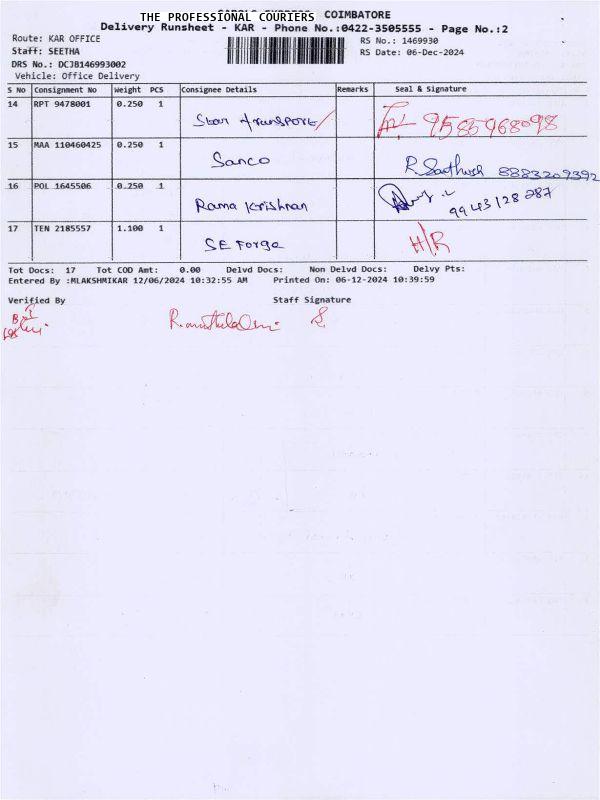 THE PROFESSIONAL COURIERS COIMBATORE
Delivery Runsheet - KAR - Phone No.:0422-3505555 - Page No.:2
Route: KAR OFFICE
RS No.: 1469930
Staff: SEETHA
RS Date: 06-Dec-2024
DRS No.: DCJB146993002
Vehicle: Office Delivery
S No Consignment No Weight PCS Consignee Details Remarks Seal & Signature
14 RPT 9478001 0.250 1 Star transport 9585968098
15 MAA 110460425 0.250 1 Sanco R. Sathish 8883209392
16 POL 1645506 0.250 1 Rama Krishnan 9943128287
17 TEN 2185557 1.100 1 SE Forge H/R
Tot Docs: 17 Tot COD Amt: 0.00 Delvd Docs: Non Delvd Docs: Delvy Pts:
Entered By :MLAKSHMIKAR 12/06/2024 10:32:55 AM Printed On: 06-12-2024 10:39:59
Verified By Staff Signature